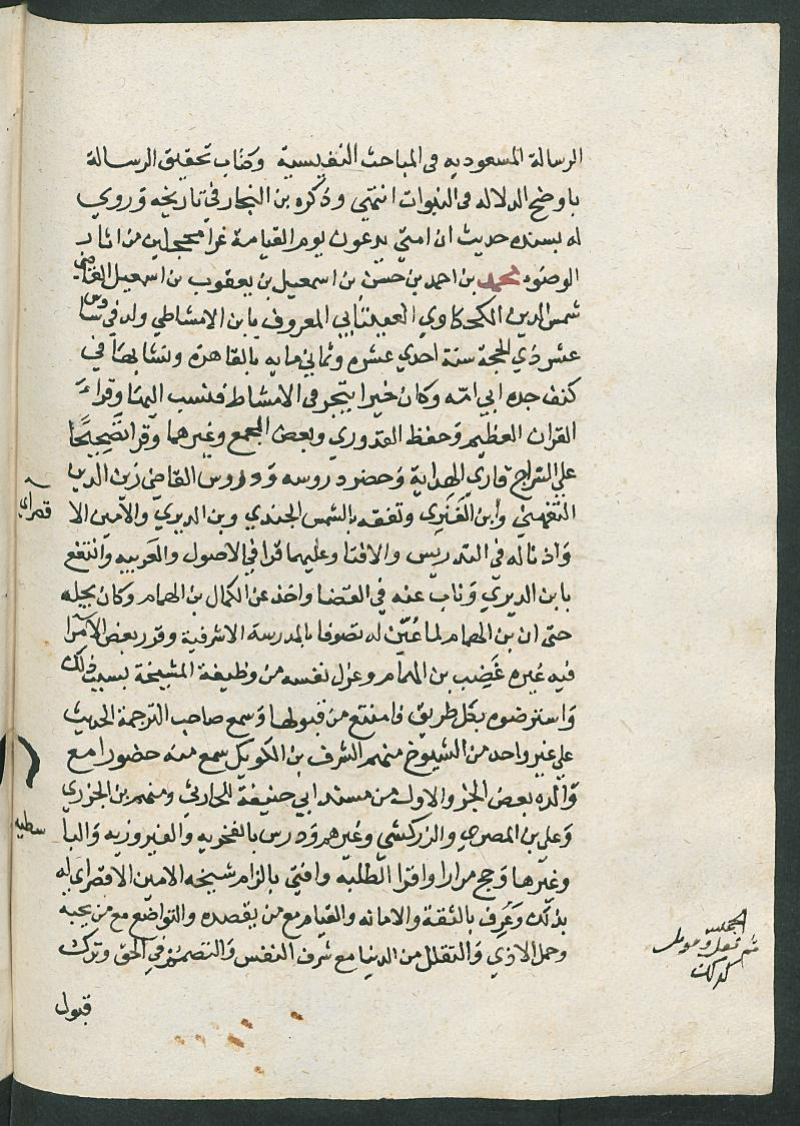 الرسالة المسعوديه في المباحث النفيسية وكتاب تحقيق الرسالة
باوضح الدلاله في النبوات انتهي وذكره بن النجار في تاريخه وروي
له بسنده حديث ان امتي يدعون يوم القيامة غرا محجلين من اثار
الوضوء محمد بن احمد بن حسن بن اسمعيل بن يعقوب بن اسمعيل القاضي
شمس الدين الكحكاوي العينتابي المعروف بابن الامشاطي ولد في سادس
عشر ذي الحجة سنة احدي عشره وثماني مايه بالقاهرة ونشا بها في
كنف جده ابي امه وكان خيرا يتجر في الامشاط فنسب اليها وقراء
القران العظيم وحفظ القدوري وبعض المجمع وغيرهما وقرا تصحيحا
علي السراج قاري الهداية وحضر دروسه ودروس القاضي زين الدين
التفهني وابن الفنري وتفقه بالشمس الجندي وبن الديري والامين الا
قصراي
واذنا له في التدريس والافتا وعليهما قرا في الاصول والعربيه وانتفع
بابن الديري وناب عنه في القضا واخذ عن الكمال بن الهمام وكان يجله
حتي ان بن الهمام لما عين له تصوفا بالمدرسة الاشرفية وقرر بعض الامرا
فيه غيره غضب بن الهمام وعزل نفسه من وظيفة المشيخة بسبب ذلك
واسترضوه بكل طريق فامتنع من قبولها وسمع صاحب الترجمة الحديث
علي غير واحد من الشيوخ منهم الشرف بن الكويك سمع منه حضورا مع
والده بعض الجزو الاول من مسند ابي حنيفة للحارثي ومنهم بن الجزري
وعلي بن المصري والزركشي وغيرهم ودرس بالفخريه والفيروزيه والبا
سطيه
وغيرها وحج مرارا واقرا الطلبه وافتي بالزام شيخه الامين الاقصراي له
بذلك وعرف بالثقة والامانه والقيام مع من يقصده والتواضع مع من يحبه
وحمل الاذي والتقلل من الدنيا مع شرف النفس والتصميم في الحق وترك
قبول